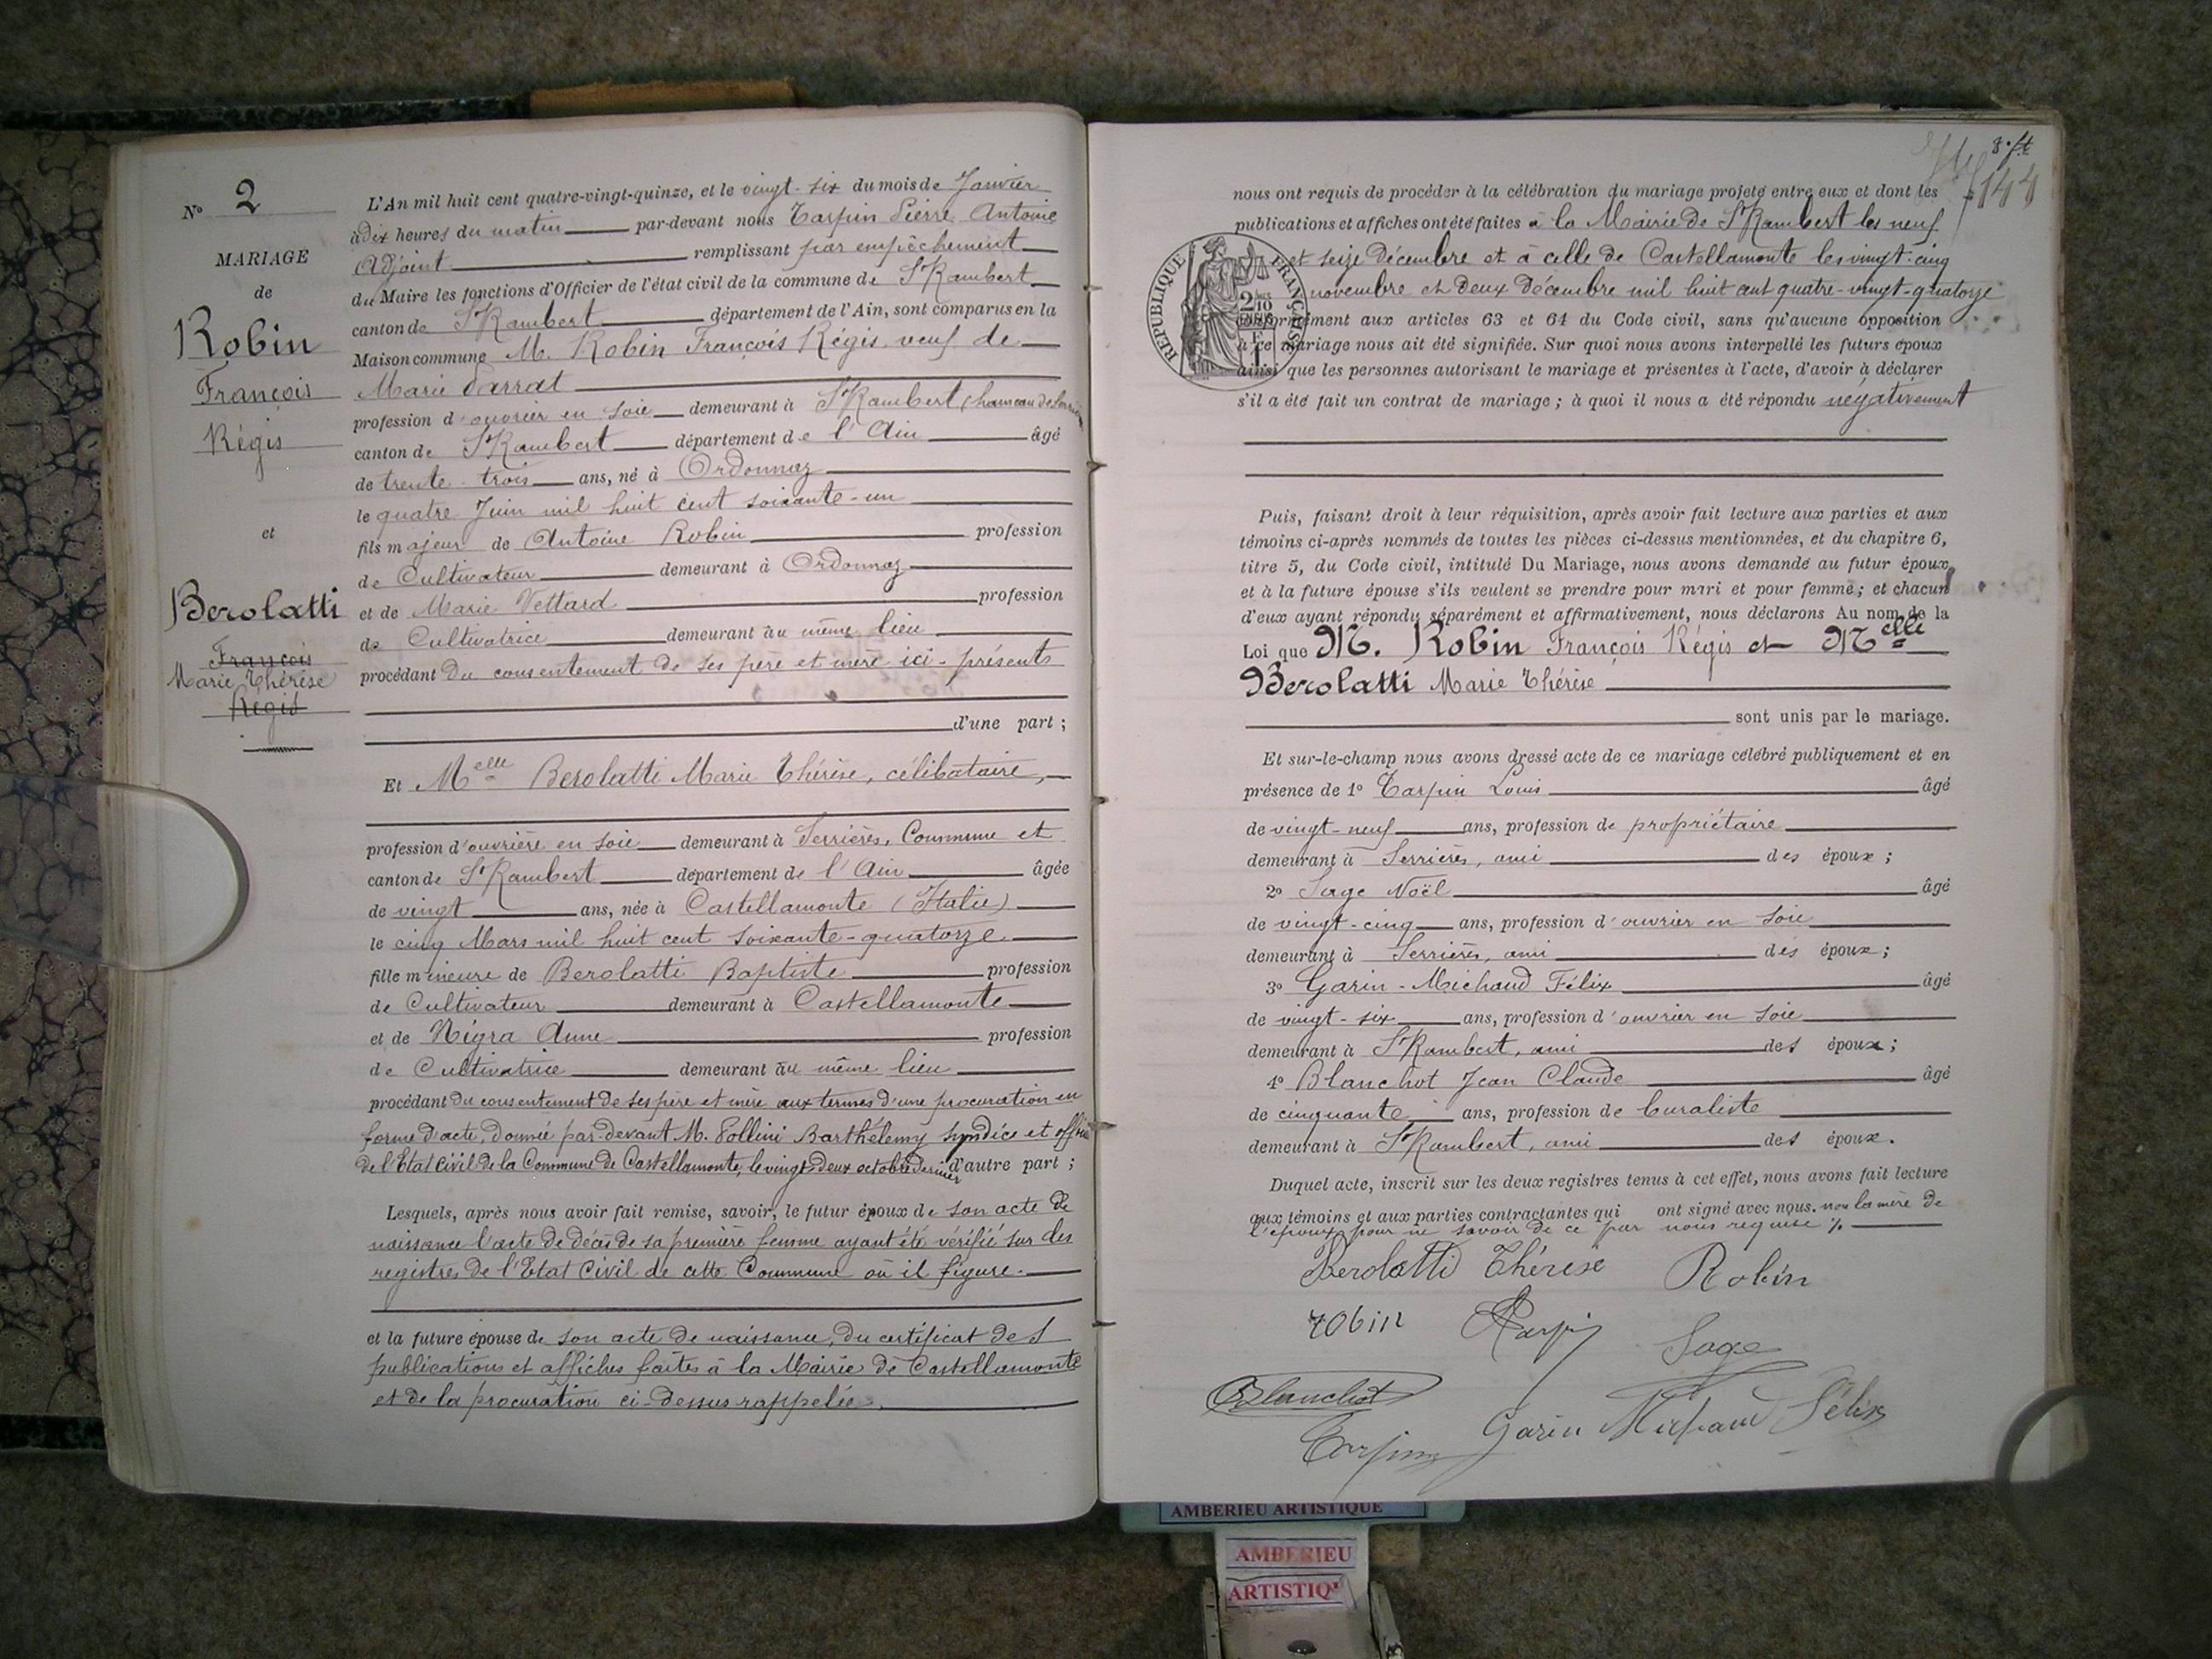 N° 2
MARIAGE
de
Robin
François
Régis
et
Berolatti
François
Marie Thérèse
Régis
L'An mil huit cent quatre-vingt-quinze, et le vingt-six du mois de Janvier
à dix heures du matin par-devant nous Tarpin Pierre Antoine
Adjoint remplissant par empêchement
du Maire les fonctions d'Officier de l'état civil de la commune de St Rambert
canton de St Rambert département de l'Ain, sont comparus en la
Maison commune M. Robin François Régis veuf de
Marie Darrat
profession d'ouvrier en soie demeurant à St Rambert, hameau de Serrières
canton de St Rambert département de l'Ain âgé
de trente-trois ans, né à Ordonnaz
le quatre Juin mil huit cent soixante-un
fils majeur de Antoine Robin profession
de Cultivateur demeurant à Ordonnaz
et de Marie Vettard profession
de Cultivatrice demeurant au même lieu
procédant du consentement de ses père et mère ici-présents
d'une part ;
Et Melle Berolatti Marie Thérèse, célibataire,
profession d'ouvrière en soie demeurant à Serrières, Commune et
canton de St Rambert département de l'Ain âgée
de vingt ans, née à Castellamonte (Italie)
le cinq Mars mil huit cent soixante-quatorze
fille mineure de Berolatti Baptiste profession
de Cultivateur demeurant à Castellamonte
et de Nigra Anne profession
de Cultivatrice demeurant au même lieu
procédant du consentement de ses père et mère aux termes d'une procuration en
forme d'acte, donnée par-devant M. Pollini Barthélemy syndice et officier
de l'Etat civil de la Commune de Castellamonte, le vingt-deux octobre dernier d'autre part ;
Lesquels, après nous avoir fait remise, savoir, le futur époux de son acte de
naissance l'acte de décès de sa première femme ayant été vérifié sur les
registres de l'Etat Civil de cette Commune où il figure.
et la future épouse de son acte de naissance, du certificat des
publications et affiches faites à la Mairie de Castellamonte
et de la procuration ci-dessus rappelée.
144
nous ont requis de procéder à la célébration du mariage projeté entre eux et dont les
publications et affiches ont été faites à la Mairie de St Rambert les neuf
et seize décembre et à celle de Castellamonte les vingt-cinq
novembre et deux décembre mil huit cent quatre-vingt-quatorze
conformément aux articles 63 et 64 du Code civil, sans qu'aucune opposition
à ce mariage nous ait été signifiée. Sur quoi nous avons interpellé les futurs époux
ainsi que les personnes autorisant le mariage et présentes à l'acte, d'avoir à déclarer
s'il a été fait un contrat de mariage ; à quoi il nous a été répondu négativement
RÉPUBLIQUE FRANÇAISE
Puis, faisant droit à leur réquisition, après avoir fait lecture aux parties et aux
témoins ci-après nommés de toutes les pièces ci-dessus mentionnées, et du chapitre 6,
titre 5, du Code civil, intitulé Du Mariage, nous avons demandé au futur époux
et à la future épouse s'ils veulent se prendre pour mari et pour femme ; et chacun
d'eux ayant répondu séparément et affirmativement, nous déclarons Au nom de la
Loi que M. Robin François Régis et Melle
Berolatti Marie Thérèse
sont unis par le mariage.
Et sur-le-champ nous avons dressé acte de ce mariage célébré publiquement et en
présence de 1° Tarpin Louis âgé
de vingt-neuf ans, profession de propriétaire
demeurant à Serrières, ami des époux ;
2° Sage Noël âgé
de vingt-cinq ans, profession d'ouvrier en soie
demeurant à Serrières, ami des époux ;
3° Garin-Michaud Félix âgé
de vingt-six ans, profession d'ouvrier en soie
demeurant à St Rambert, ami des époux ;
4° Blanchot Jean Claude âgé
de cinquante ans, profession de buraliste
demeurant à St Rambert, ami des époux.
Duquel acte, inscrit sur les deux registres tenus à cet effet, nous avons fait lecture
aux témoins et aux parties contractantes qui ont signé avec nous. non la mère de
l'époux pour ne savoir de ce par nous requise %
Berolatti Thérèse Robin
robin Tarpin Sage
Blanchot
Tarpin Garin Michaud Félix
AMBERIEU ARTISTIQUE
AMBERIEU
ARTISTIQ